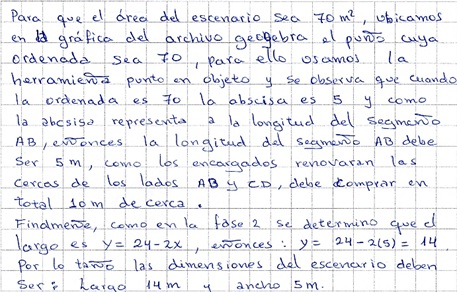 Para que el área del escenario sea 70 m², ubicamos
en la gráfica del archivo geogebra el punto cuya
ordenada sea 70, para ello usamos la
herramienta punto en objeto y se observa que cuando
la ordenada es 70 la abscisa es 5 y como
la abcsisa representa a la longitud del segmento
AB, entonces la longitud del segmento AB debe
ser 5 m, como los encargados renovaran las
cercas de los lados AB y CD, debe comprar en
total 10 m de cerca.
Finalmente, como en la fase 2 se determino que el
largo es y = 24-2x, entonces: y = 24-2(5) = 14
Por lo tanto las dimensiones del escenario deben
ser: Largo 14 m y ancho 5m.